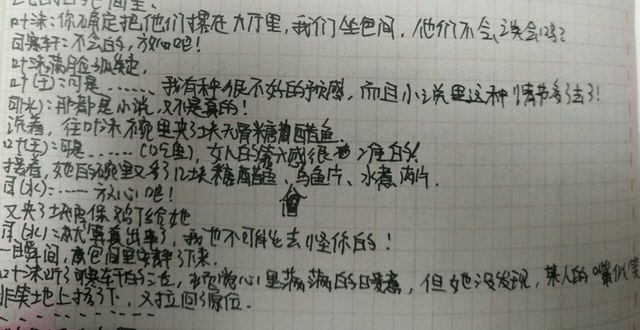 叶沫:你确定把他们撂在大厅里,我们坐包间,他们不会误会吗?
司寒轩:不会的,放心吧!
叶沫满脸狐疑.
叶(主):可是……我有种很不好的预感,而且小说里这种情节多了去了!
司(水):那都是小说,又不是真的!
说着,往叶沫碗里夹了块无骨糖醋鱼.
叶(主):可是……(吃鱼),女人的第六感很准的!
接着,她的碗里又多了几块糖醋鱼、乌鱼片、水煮肉片.
司(水):……放心吧!
又夹了块宫保鸡丁给她
司(水):就算真出事了,我也不可能去怪你的!
一瞬间,包间里安静了下来.
叶沫听了司寒轩的这话,心里满满的是暖意,但她没发现,某人的嘴似笑
非笑地上扬了下,又拉回了原位.